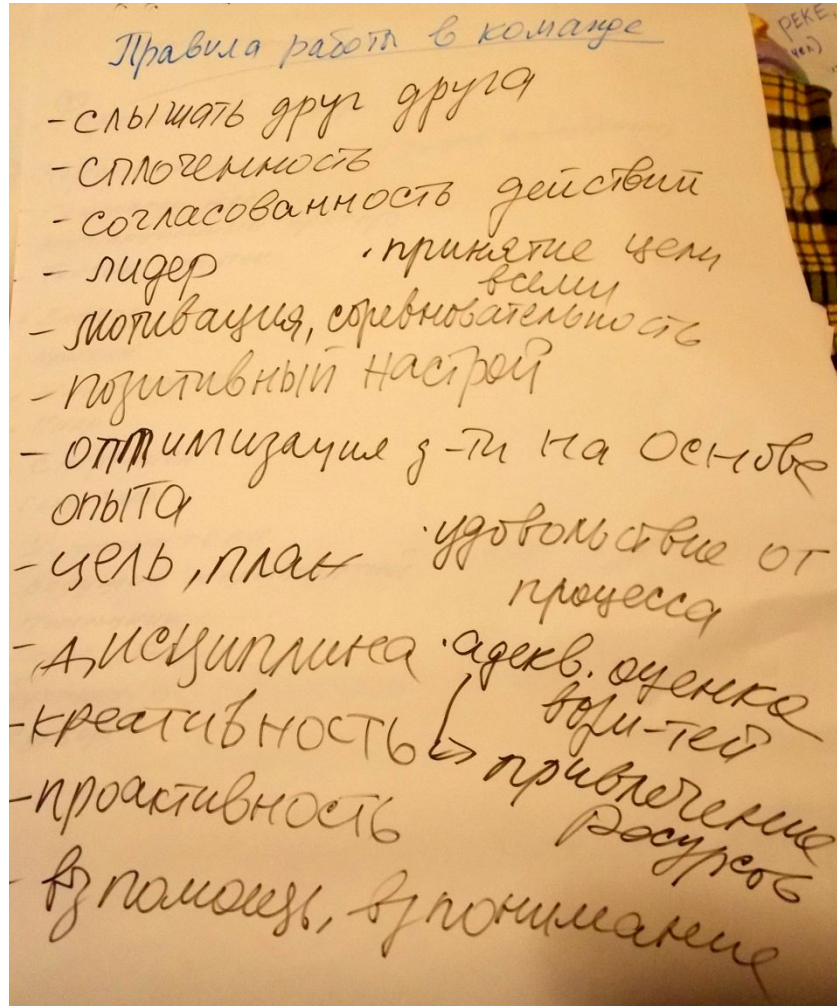 Правила работы в команде
-слышать друг друга
-сплоченность
-согласованность действий
- лидер
·принятие цели
всеми
- мотивация, соревновательность
- позитивный настрой
- оптимизация д-ти на основе
опыта
- цель, план
·удовольствие от
процесса
- дисциплина
·адекв. оценка
возм-тей
-креативность
привлечение
ресурсов
-проактивность
- вз помощь, вз понимание
РЕКЕ,
чел)